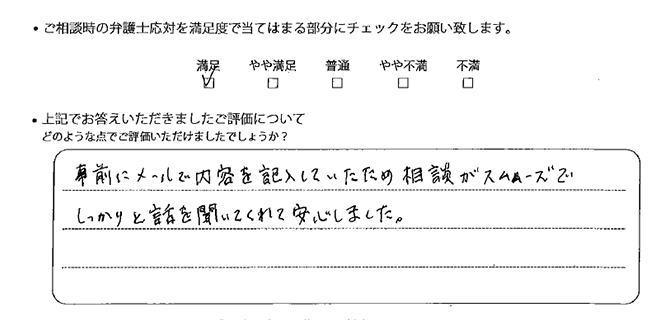 ・ご相談時の弁護士応対を満足度で当てはまる部分にチェックをお願い致します。
満足 やや満足 普通 やや不満 不満
☑ □ □ □ □
・上記でお答えいただきましたご評価について
どのような点でご評価いただけましたでしょうか？
事前にメールで内容を記入していたため相談がスムーズで
しっかりと話を聞いてくれて安心しました。